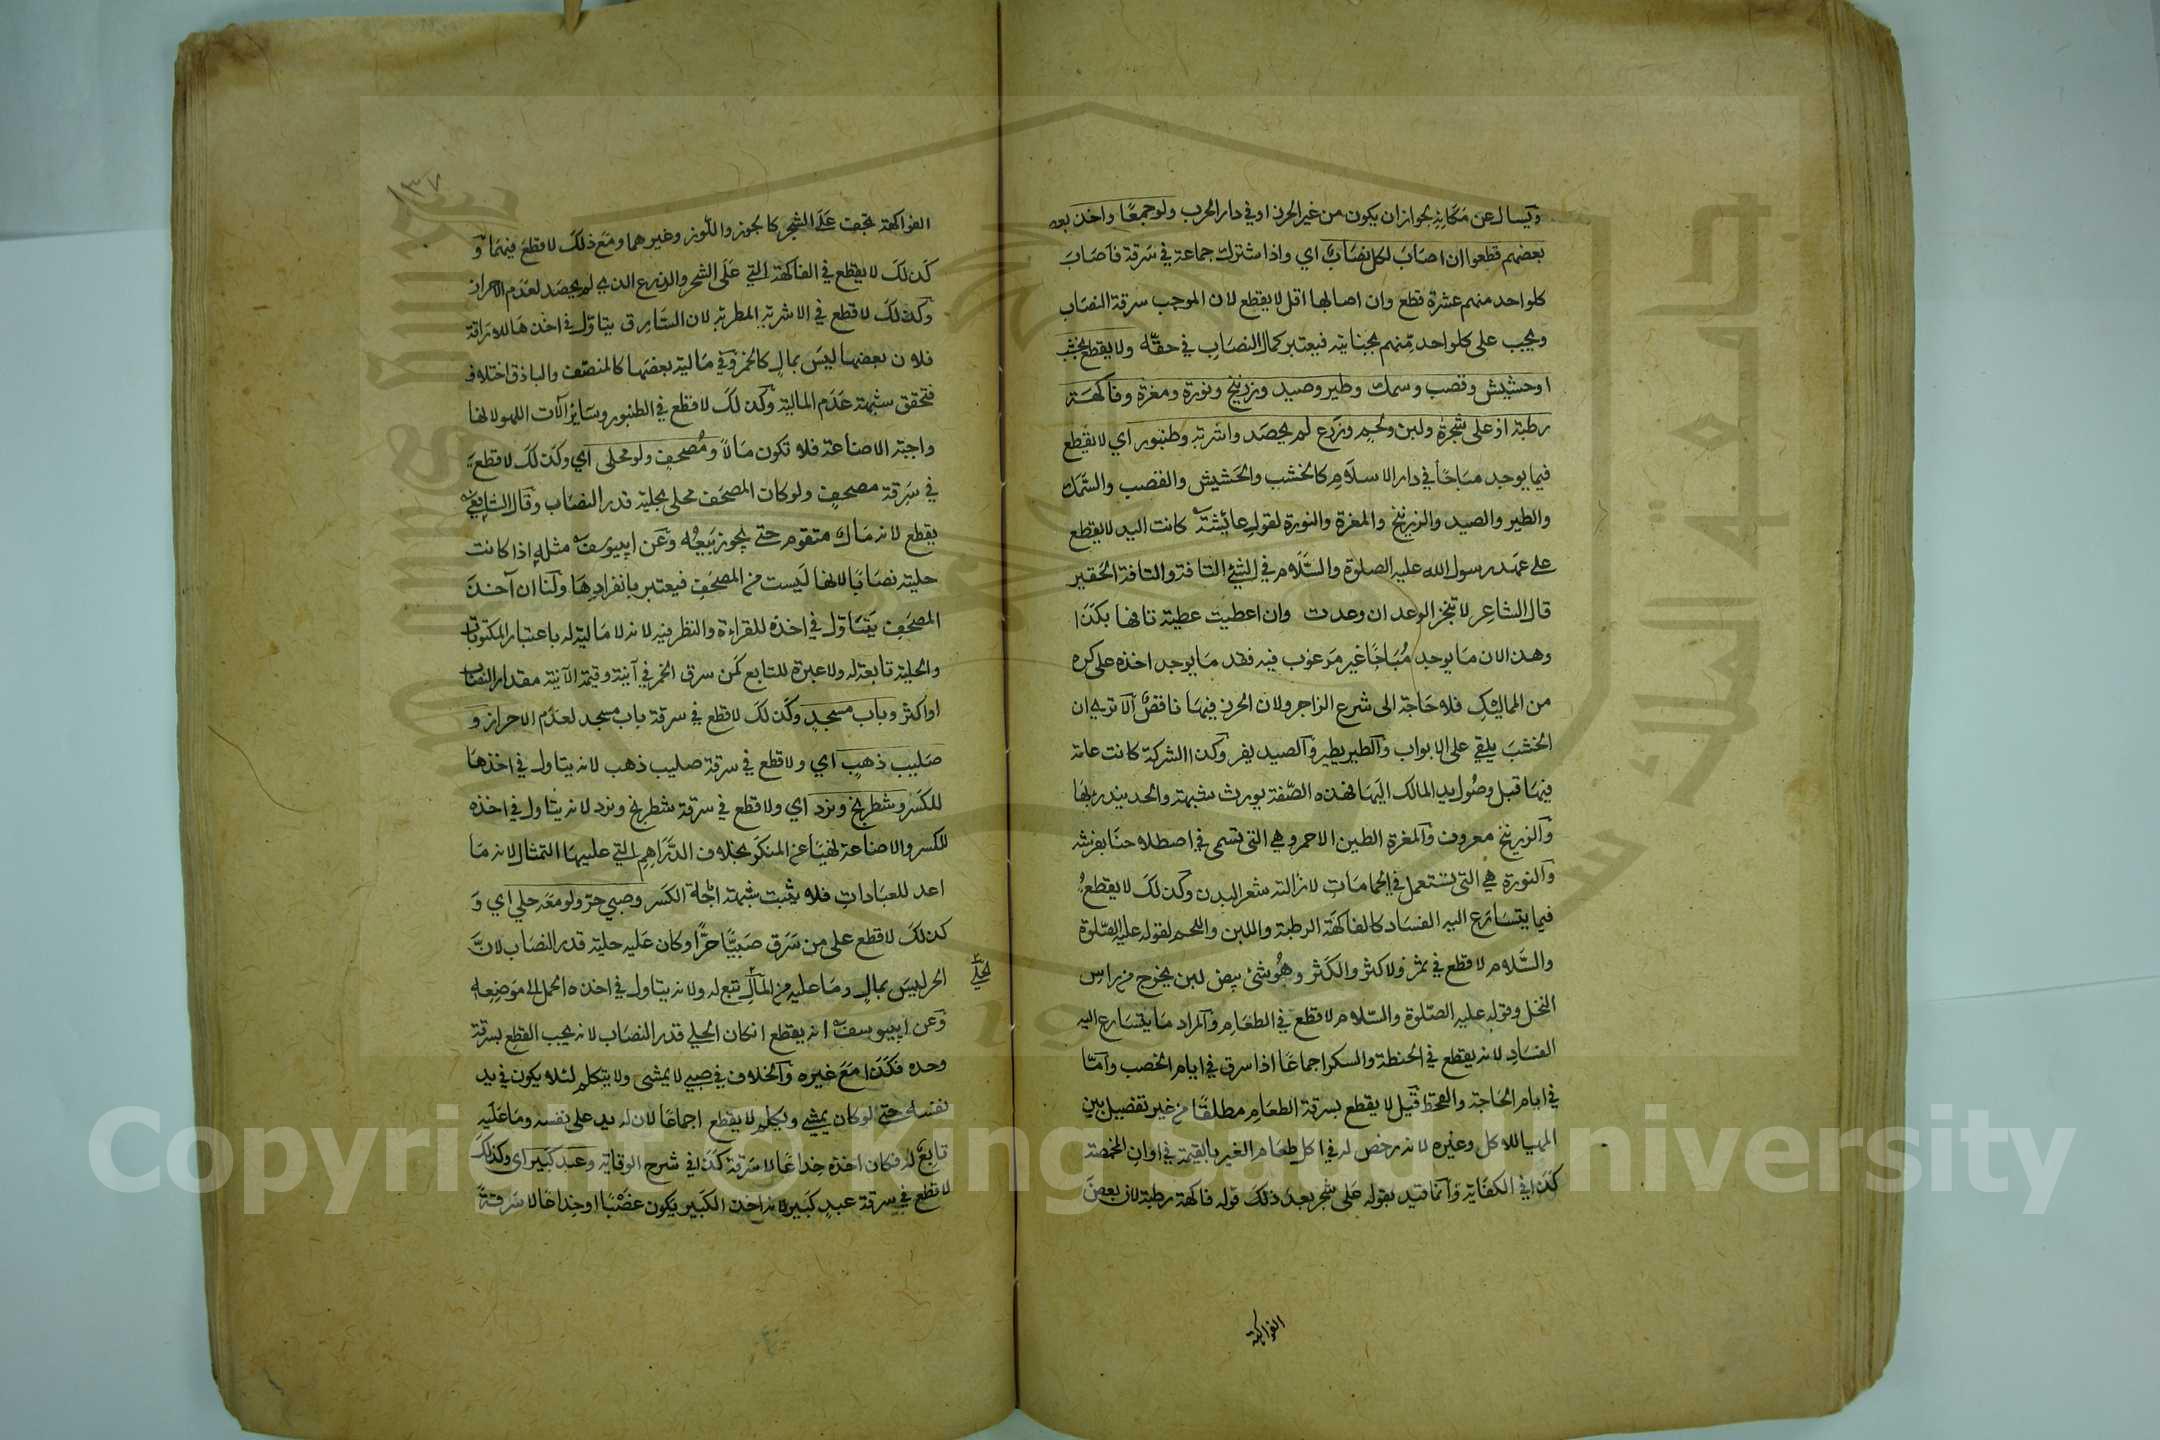 ويسال عن مكانه لجواز ان يكون من غير الحرز او في دار الحرب ولو جمعا واخذ بعض
بعضهم قطعوا ان اصاب لكل نصاب اي واذا اشترك جماعة في سرقة فاصاب
كلواحد منهم عشرة قطع وان اصابها اقل لا يقطع لان الموجب سرقة النصاب
ويجب على كلواحد منهم بجنايته فيعتبر كمال النصاب في حقه ولا يقطع بخشب
او حشيش وقصب وسمك وطير وصيد وزرنيخ ونورة ومغرة وفاكهة
رطبة او على شجرة ولبن ولحم وزرع لم يحصد واشربة وطنبور اي لا يقطع
فيما يوجد مباحا في دار الاسلام كالخشب والحشيش والقصب والسمك
والطير والصيد والزرنيخ والمغرة والنورة لقول عائيشة كانت اليد لا يقطع
على عهد رسول الله عليه الصلوة والسلام في الشئ التافة والتافة الحقير
قال الشاعر لا تنجز الوعد ان وعدت وان اعطيت عطية تافها بكدا
وهذا لان ما يوجد مباحا غير مرغوب فيه فقد ما يوجد اخذه على كره
من المالك فلا حاجة الى شرع الزاجر ولان الحرز فيها ناقص الا ترى ان
الخشب يلقي على الابواب والطير يطير والصيد يفر وكذا الشركة كانت عامة
فيها قبل وصول يد المالك اليها فهذه الصفة يورث شبهة والحد يندرء بها
والزرنيخ معروف والمغرة الطين الاحمر وهي التي تسمى في اصطلاحنا بفرشه
والنورة هي التي تستعمل في الحمامات لازالة شعر البدن وكذلك لا يقطع
فيما يتسارع اليه الفساد كالفاكهة الرطبة واللبن واللحم لقوله عليه الصلوة
والسلام لا قطع في ثمر ولا كثر والكثر وهو شئ بيض لبن يخرج من راس
النخل وقوله عليه الصلوة والسلام لا قطع في الطعام والمراد ما يتسارع اليه
الفساد لانه يقطع في الحنطة والسكر اجماعا اذا سرق في ايام الخصب واما
في ايام الحاجة والقحط قيل لا يقطع بسرقة الطعام مطلقا من غير تفصيل بين
المهيا للاكل وغيره لانه رخص له في اكل طعام الغير بالقيمة في اوان المخمصة
كذا في الكفاية وانما قيد بقوله على شجر بعد ذلك قوله فاكهة رطبة لان بعض
الفواكهة
١٣٧
الفواكهة تجفف على الشجر كالجوز واللوز وغيرهما ومع ذلك لا قطع فيهما و
كذلك لا يقطع في الفاكهة التي على الشجر والزرع الذي لم يحصد لعدم الاحراز
وكذلك لا قطع في الاشربة المطربة لان السارق يتاول في اخذها للاراقة
فلان بعضها ليس بمال كالخمر وفي مالية بعضها كالمنصف والباذق اختلاف
فتحقق شبهة عدم المالية وكذلك لا قطع في الطنبور وساير الات اللهو لانها
واجبة الاضاعة فلا تكون مالا ومصحف ولو محلى اي وكذلك لا قطع
في سرقة مصحف ولو كان المصحف محلى بحلية قدر النصاب وقال الشافعي
يقطع لانه مال متقوم حتى يجوز بيعه وعن ابييوسف مثله اذا كانت
حليته نصابا لانها ليست من المصحف فيعتبر بانفرادها ولنا ان آخذ
المصحف يتاول في اخذه للقراءة والنظر فيه لانه لا مالية له باعتبار المكتوبات
والحلية تابعة له ولا عبرة للتابع كمن سرق الخمر في آنية وقيمة الآنية مقدار النصاب
او اكثر وباب مسجد وكذلك لا قطع في سرقة باب مسجد لعدم الاحراز و
صليب ذهب اي ولا قطع في سرقة صليب ذهب لانه يتاول في اخذها
للكسر وشطرنج ونرد اي ولا قطع في سرقة شطرنج ونرد لانه يتاول في اخذه
للكسر والاضاعة نهيا عن المنكر بخلاف الدراهم التي عليها التمثال لانه ما
اعد للعبادات فلا يثبت شبهة اباحة الكسر وصبي حر ولو معه حلي اي و
كذلك لا قطع على من سرق صبيا حرا وكان عليه حلية قدر النصاب لان
الحر ليس بمال وما عليه من المال تبع له ولانه يتاول في اخذه الحمل الى موضعه
الحلي
وعن ابييوسف انه يقطع انكان الحلي قدر النصاب لانه يجب القطع بسرقة
وحده فكذا مع غيره والخلاف في صبي لا يمشى ولا يتكلم لئلا يكون في يد
نفسه حتى لو كان يمشي ويكلم لا يقطع اجماعا لان له يد على نفسه وما عليه
تابع له فكان اخذه خداعا لا سرقة كذا في شرح الوقاية وعبد كبير اى وكذلك
لا قطع في سرقة عبد كبير لانه اخذ الكبير يكون غصبا او خداعا لا سرقة
Copyright © King Saud University